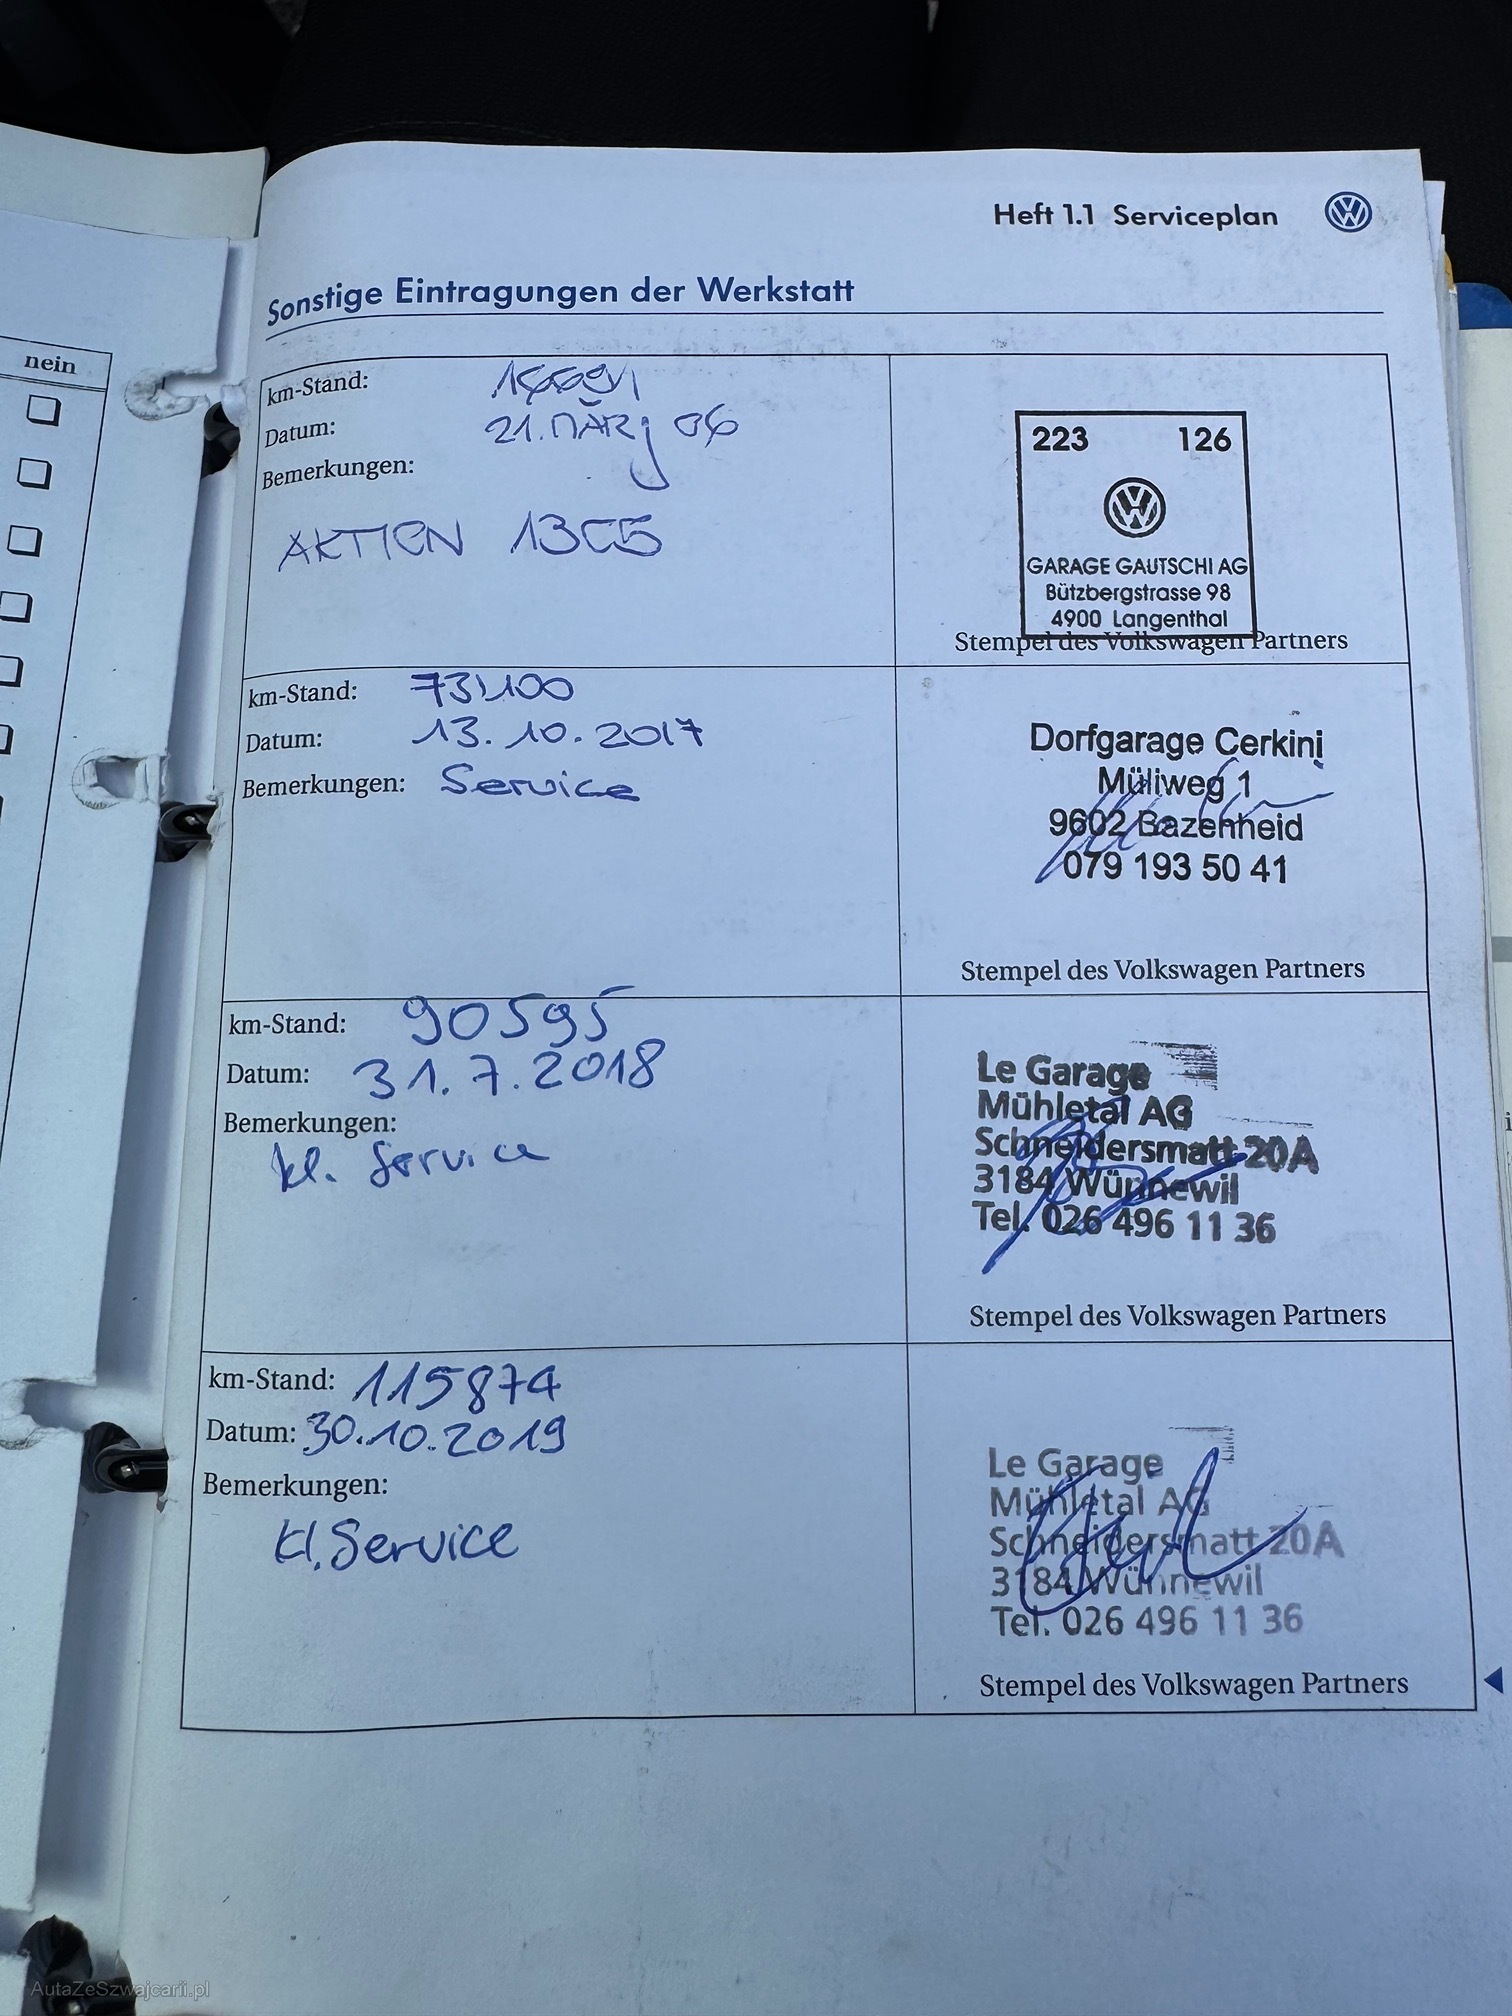 nein
Heft 1.1 Serviceplan
Sonstige Eintragungen der Werkstatt
km-Stand:
Datum: 21. MÄRZ 06
Bemerkungen:
AKTION 13C5
223 126
GARAGE GAUTSCHI AG
Bützbergstrasse 98
4900 Langenthal
Stempel des Volkswagen Partners
km-Stand: 73'100
Datum: 13.10.2017
Bemerkungen: Service
Dorfgarage Cerkini
Müliweg 1
9602 Bazenheid
079 193 50 41
Stempel des Volkswagen Partners
km-Stand: 90595
Datum: 31.7.2018
Bemerkungen:
kl. Service
Le Garage
Mühletal AG
Schneidersmatt 20A
3184 Wünnewil
Tel. 026 496 11 36
Stempel des Volkswagen Partners
km-Stand: 115874
Datum: 30.10.2019
Bemerkungen:
kl. Service
Le Garage
Mühletal AG
Schneidersmatt 20A
3184 Wünnewil
Tel. 026 496 11 36
Stempel des Volkswagen Partners
AutaZeSzwajcarii.pl